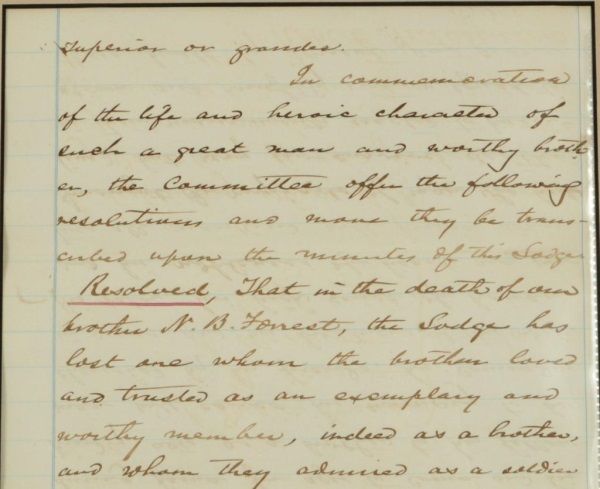 superior or grander.
In commemoration
of the life and heroic character of
such a great man and worthy broth
er, the Committee offer the following
resolutions and move they be trans-
cribed upon the minutes of this Lodge
Resolved, That in the death of our
brother N. B. Forrest, the Lodge has
lost one whom the brothers loved
and trusted as an exemplary and
worthy member, indeed as a brother,
and whom they admired as a soldier